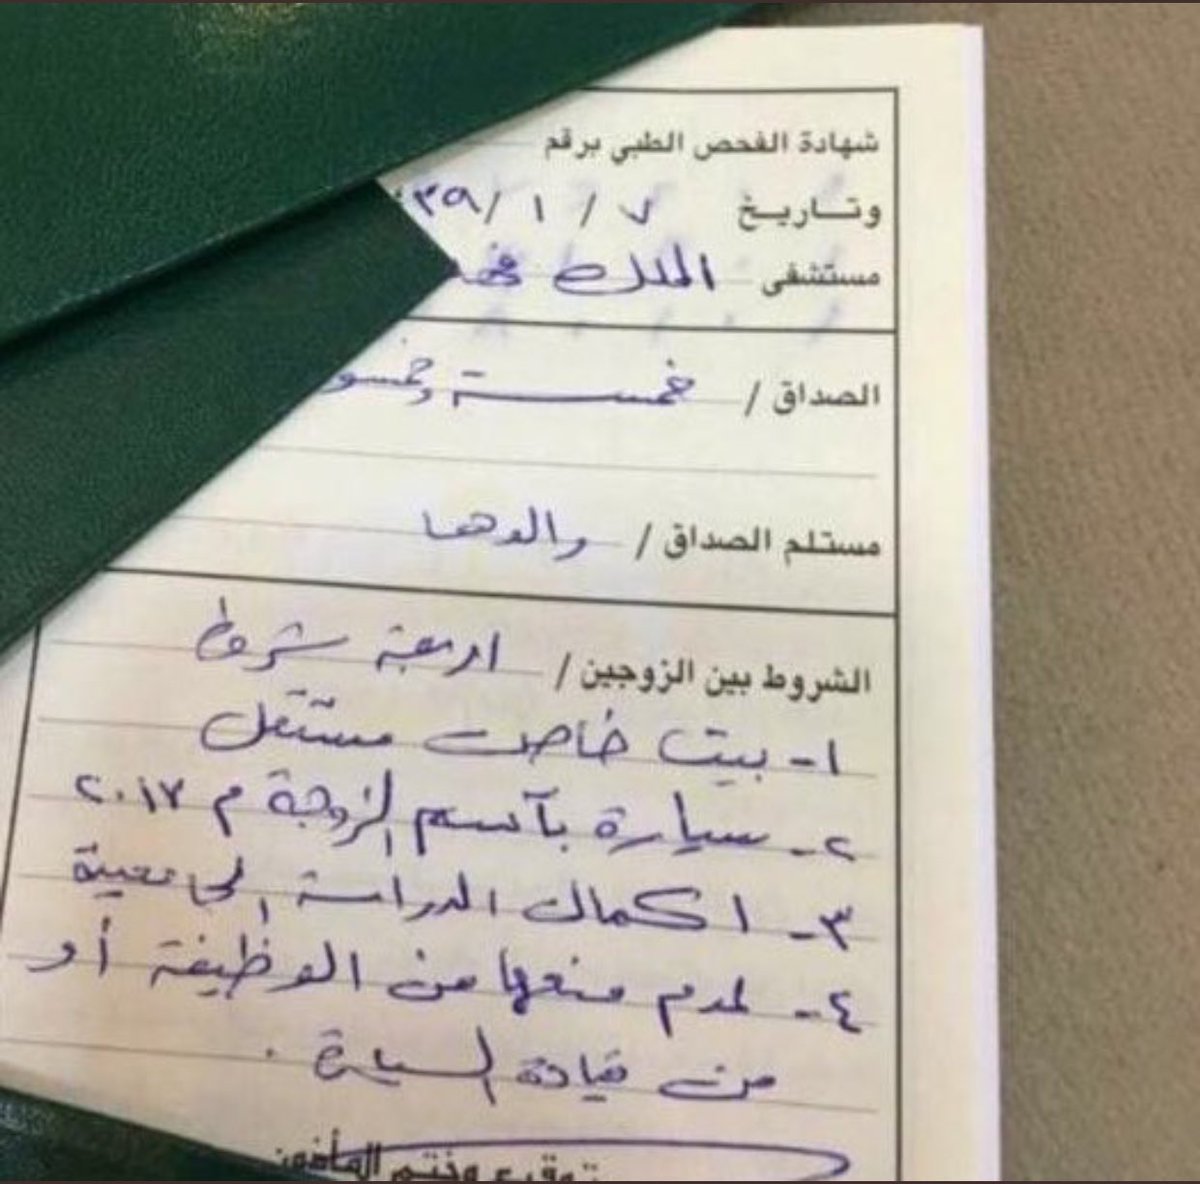 شهادة الفحص الطبي برقم
وتاريخ ٧ / ١ / ٣٩
مستشفى الملك
الصداق / خمسة
مستلم الصداق / والدها
الشروط بين الزوجين / اربعة شروط
١- بيت خاص مستقل
٢- سيارة بآسم الزوجة م ٢٠١٧
٣- اكمال الدراسة الجامعية
٤- لعدم منعها من الوظيفة أو
من قيادة السيارة .
توقيع وختم المأذون